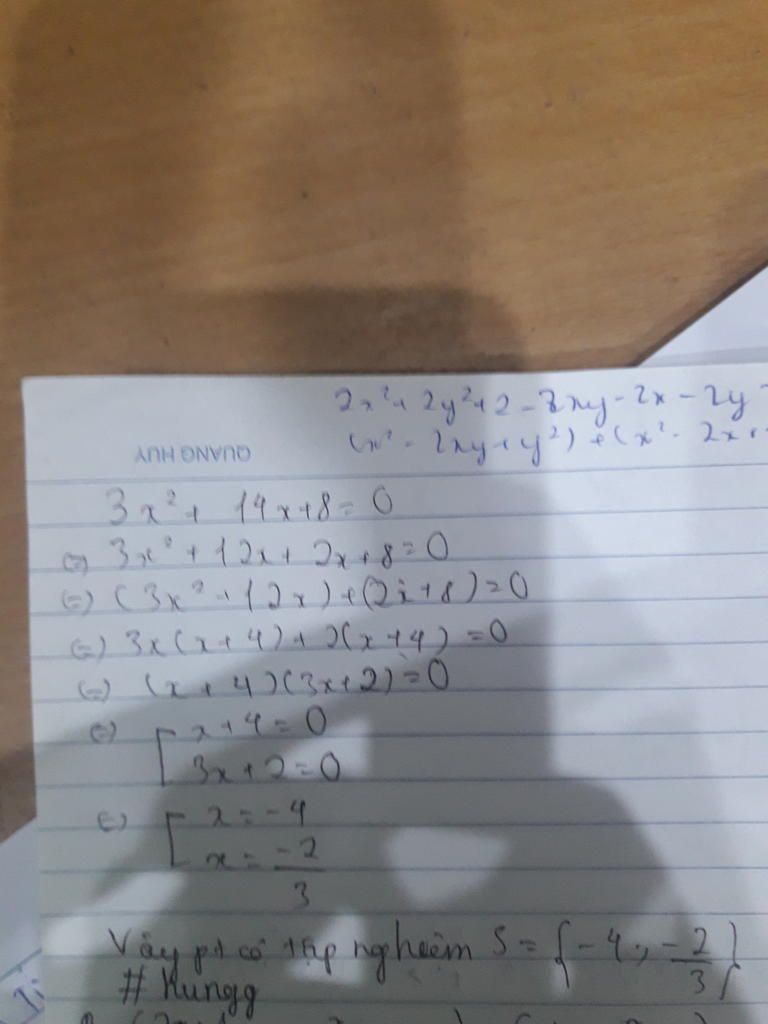 2x² + 2y² + 2 - 2xy - 2x - 2y
(x² - 2xy + y²) + (x² - 2x +
QUANG HUY
3x² + 14x + 8 = 0
(=) 3x² + 12x + 2x + 8 = 0
(=) (3x² + 12x) + (2x + 8) = 0
(=) 3x(x + 4) + 2(x + 4) = 0
(=) (x + 4)(3x + 2) = 0
(=) [ x + 4 = 0
3x + 2 = 0
(=) [ x = -4
x = -2/3
Vậy pt có tập nghiệm S = {-4; -2/3}
# Kungg